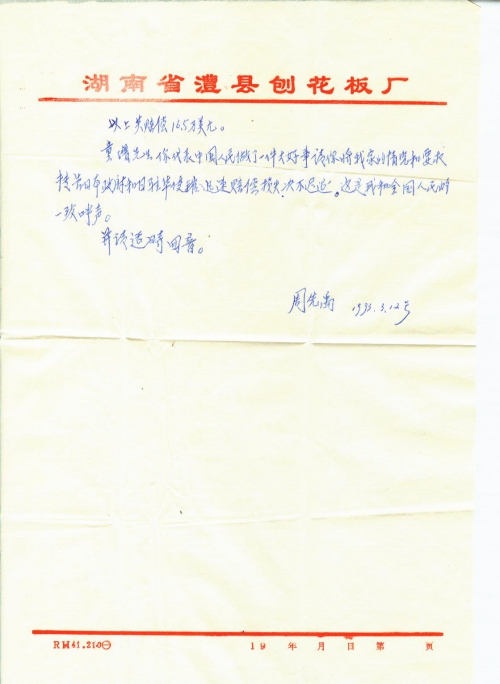 湖南省澧县刨花板厂
以上共赔偿16.5万美元。
童增先生你代表中国人民做了一件大好事请你将我家的情况和要求
转告日本政府和日驻华使馆迅速赔偿损失决不退让。这是我和全国人民的
一致呼声。
并请适时回音。
周先尚 1993.3.12号
RM41.210㊀ 19 年 月 日 第 页